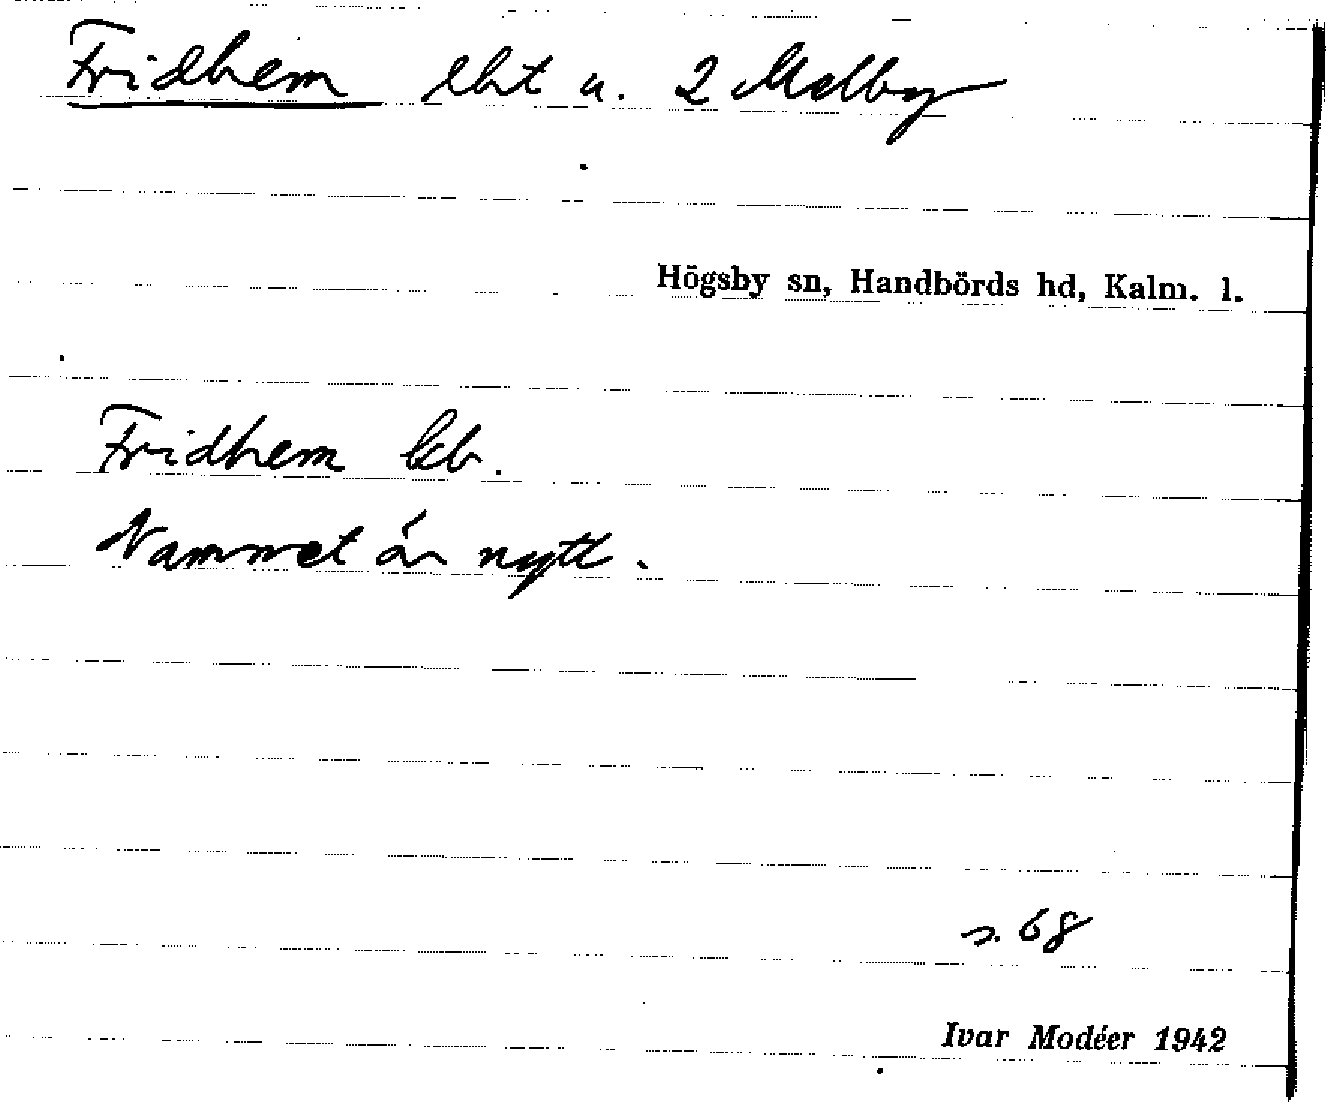 Fridhem lht u. 2 Mellby
Högsby sn, Handbörds hd, Kalm. l.
Fridhem kb.
Namnet är nytt.
s. 68
Ivar Modéer 1942